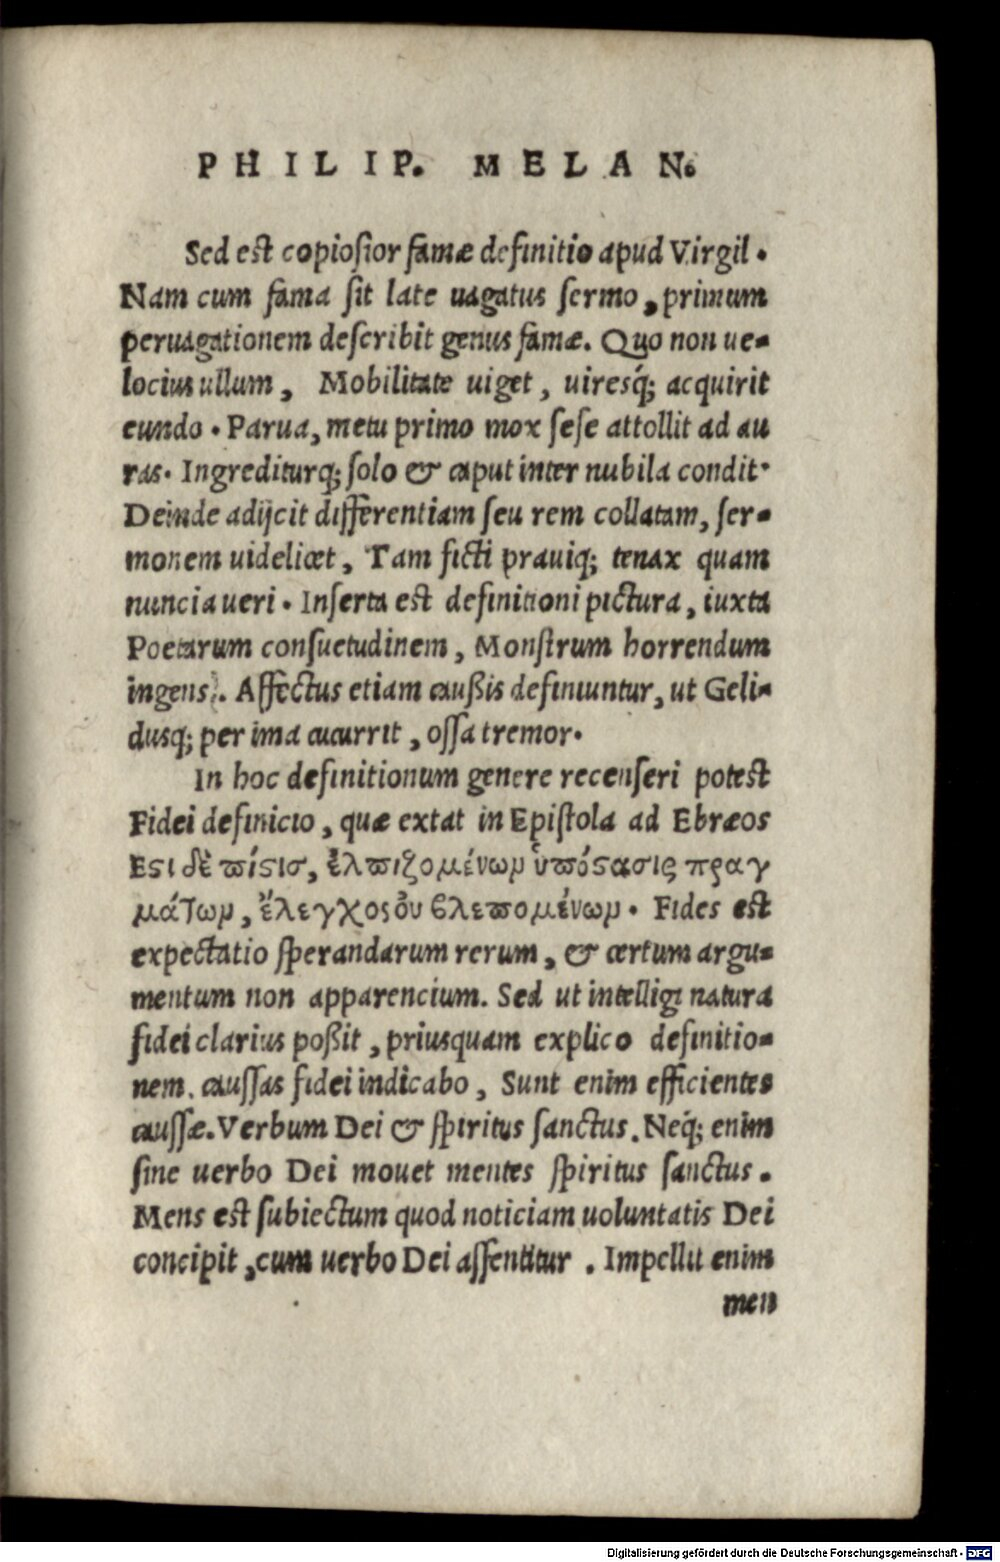 PHILIP. MELAN.
Sed est copiosior famæ definitio apud Virgil.
Nam cum fama sit late uagatus sermo, primum
peruagationem describit genus famæ. Quo non ue-
locius ullum, Mobilitate uiget, uiresq́; acquirit
eundo. Parua, metu primo mox sese attollit ad au
ras. Ingrediturq; solo & caput inter nubila condit.
Deinde adijcit differentiam seu rem collatam, ser-
monem uidelicet, Tam ficti prauiq; tenax quam
nuncia ueri. Inserta est definitioni pictura, iuxta
Poetarum consuetudinem, Monstrum horrendum
ingens. Affectus etiam caußis definiuntur, ut Geli-
dusq; per ima cucurrit, ossa tremor.
In hoc definitionum genere recenseri potest
Fidei definicio, quæ extat in Epistola ad Ebræos
Εϛι δὲ πίϛισ, ἐλπιζομένων ὑπόϛασις πραγ
μάτων, ἔλεγχος οὐ βλεπομένων. Fides est
expectatio sperandarum rerum, & certum argu-
mentum non apparencium. Sed ut intelligi natura
fidei clarius poßit, priusquam explico definitio-
nem. caussas fidei indicabo, Sunt enim efficientes
caussæ. Verbum Dei & spiritus sanctus. Neq́; enim
sine uerbo Dei mouet mentes spiritus sanctus.
Mens est subiectum quod noticiam uoluntatis Dei
concipit, cum uerbo Dei assentitur. Impellit enim
men
Digitalisierung gefördert durch die Deutsche Forschungsgemeinschaft - DFG